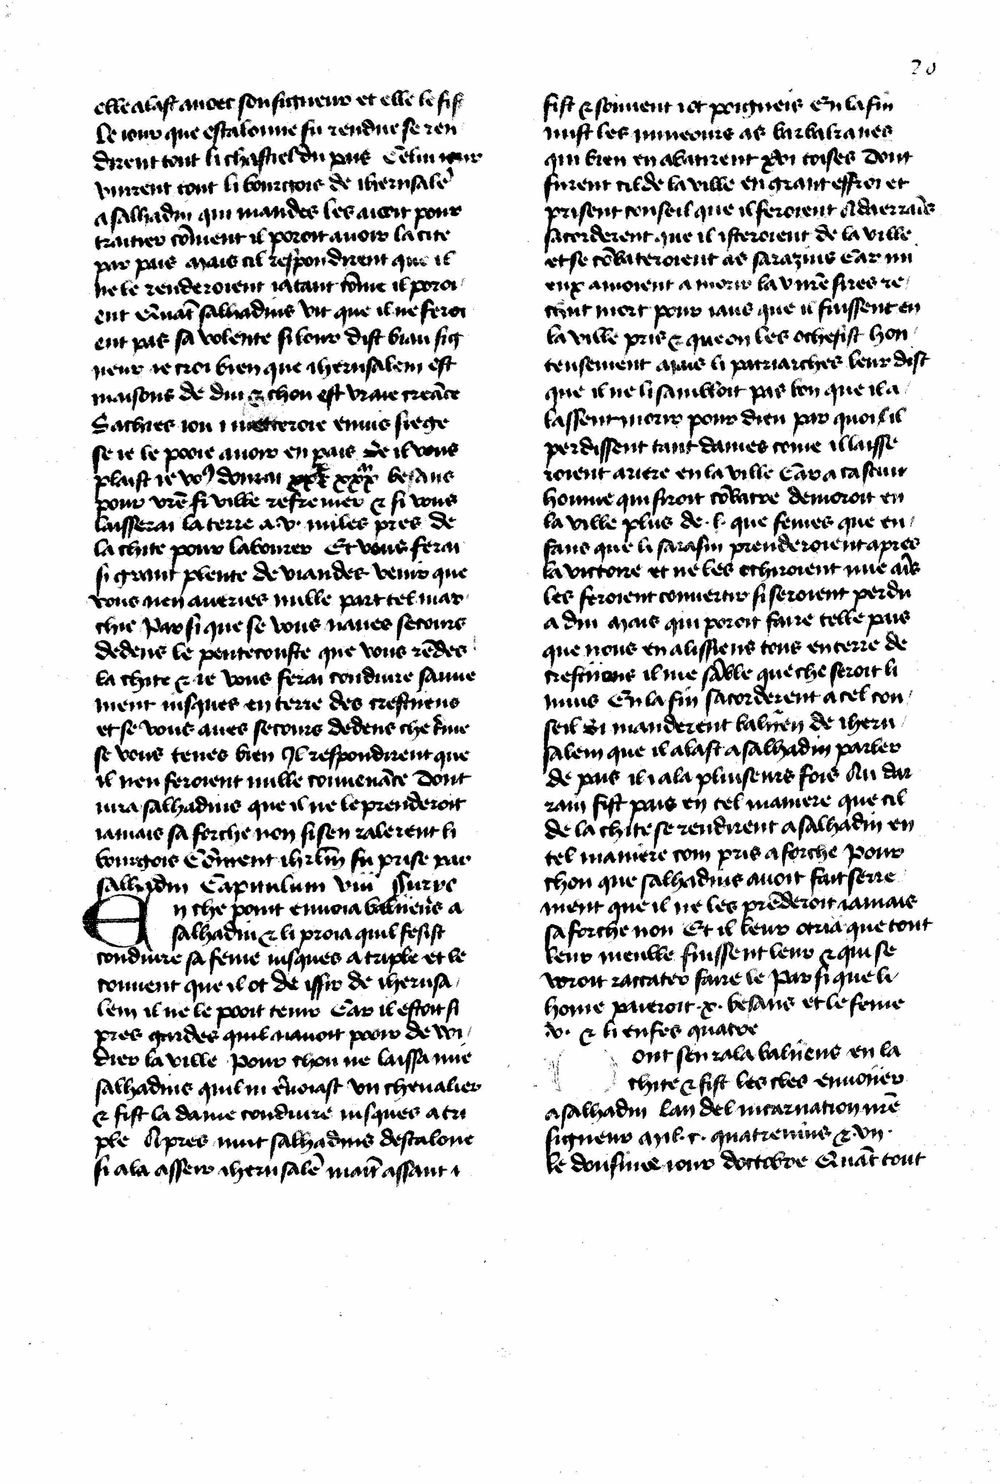 20
elle alast avoec son signeur et elle le fist
Le iour que escalonne fu rendue se ren
dirent tout li chastiel du pais Celui iour
vinrent tout li bourgois de iherusalē
a salhadin qui mandes les avoit pour
traitier cōment il poroit avoir la cite
par pais Mais cil respondirent que il
ne le renderoient ia tant cōme il poroi
ent Quāt salhadins vit que il ne feroi
ent pas sa volente si lour dist biau sig
neur ie croi bien que iherusalem est
maisons de diu & chou est vraie creāce
Sachies ion i metteroie envis siege
se ie le pooie avoir en pais Se il vous
plaist ie vo9 donrai xxxm besans
pour vrē si ville refremer & si vous
laisserai la terre a .v. miles pres de
la chite pour labourer Et vous ferai
si grant plente de viandes venir que
vous nen averies nulle part tel mar
chie Par si que se vous naves secours
dedens le pentecouste que vous rēdes
la chite & ie vous ferai conduire sauve
ment iusques en terre des crestiiens
et se vous aves secours dedens che tͬme
se vous tenes bien Il respondirent que
il nen feroient nulle convenāce Dont
iura salhadins que il ne le prenderoit
iamais sa forche non si sen ralerent li
bourgois Cōment ihrlm̄ fu prise par
salhadin Capitulum viii Surve
En che point envoia baliiens a
salhadin & li proia quil fesist
conduire sa feme iusques a triple et le
convent que il ot de issir de iherusa
lem il ne le pooit tenir Car il estoit si
pres gardes quil navoit pooir de wi
dier la ville Pour chou ne laissa mie
salhadins quil ni ēvoiast un chevalier
& fist la dame conduire iusques a tri
ple Apres mut salhadins descalone
si ala asseir iherusalē maīt assaut i
fist & souvent i ot poigneis En la fin
mist les mineours as barbakanes
qui bien en abatirent xvi toises Dont
furent cil de la ville en grant effroi et
prisent conseil que il feroient A daerraīs
sacorderent que il isteroient de la ville
et se cōbateroient as sarazins Car mi
eux amoient a morir la u nrē sires re
chut mort pour iaus que il fuissent en
la ville pris & que on les ochesist hon
teusement Mais li patriarches leur dist
que il ne li sambloit pas bon que il a
lassent morir pour dieu par quoi il
perdissent tant dames come il laisse
roient ariere en la ville Car a cascun
homme qui siroit cōbatre demoroit en
la ville plus de .l. que femes que en
fans que li sarasin prenderoient apres
la victoire et ne les ochiroient mie aīs
les feroient convertir si seroient perdu
a diu Mais qui poroit faire telle pais
que nous en alissiens tous en terre de
crestiiens il me sāble que che seroit li
mius En la fin sacorderent a cel con
seil Si manderent baliien de iheru
salem que il alast a salhadin parler
de pais il i ala pluiseurs fois Au dar
rain fist pais en tel maniere que cil
de la chite se rendirent a salhadin en
tel maniere com pris a forche Pour
chou que salhadins avoit fait serre
ment que il ne les prēderoit iamais
sa forche non Et il leur otria que tout
leur meuble fuissent leur & qui se
voroit raccater faire le Par si que le
home paieroit .x. besans et le feme
.v. & li enfes quatre
ont sen rala baliiens en la
chite & fist les cles envoiier
a salhadin Lan del incarnation nrē
signeur Mil .c. quatrevins & vii.
le dousime iour doctobre Quāt tout